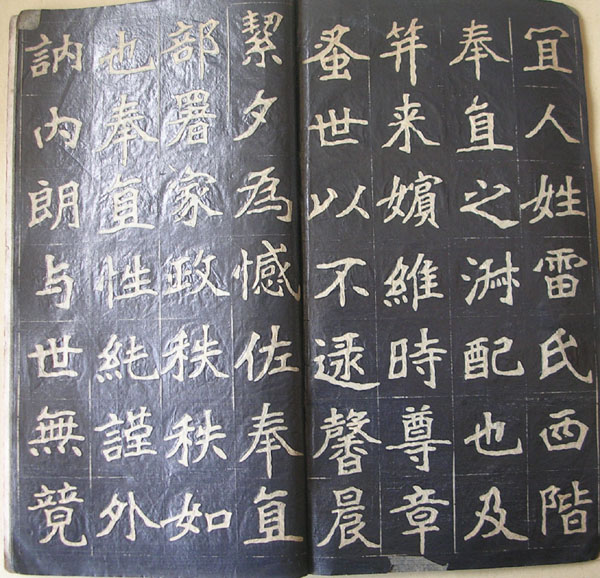 冝人姓雷氏西階
奉直之淑配也及
笄来嬪維時尊章
蚤世以不逮馨晨
絜夕為憾佐奉直
部署家政秩秩如
也奉直性純謹外
訥内朗与世無竟